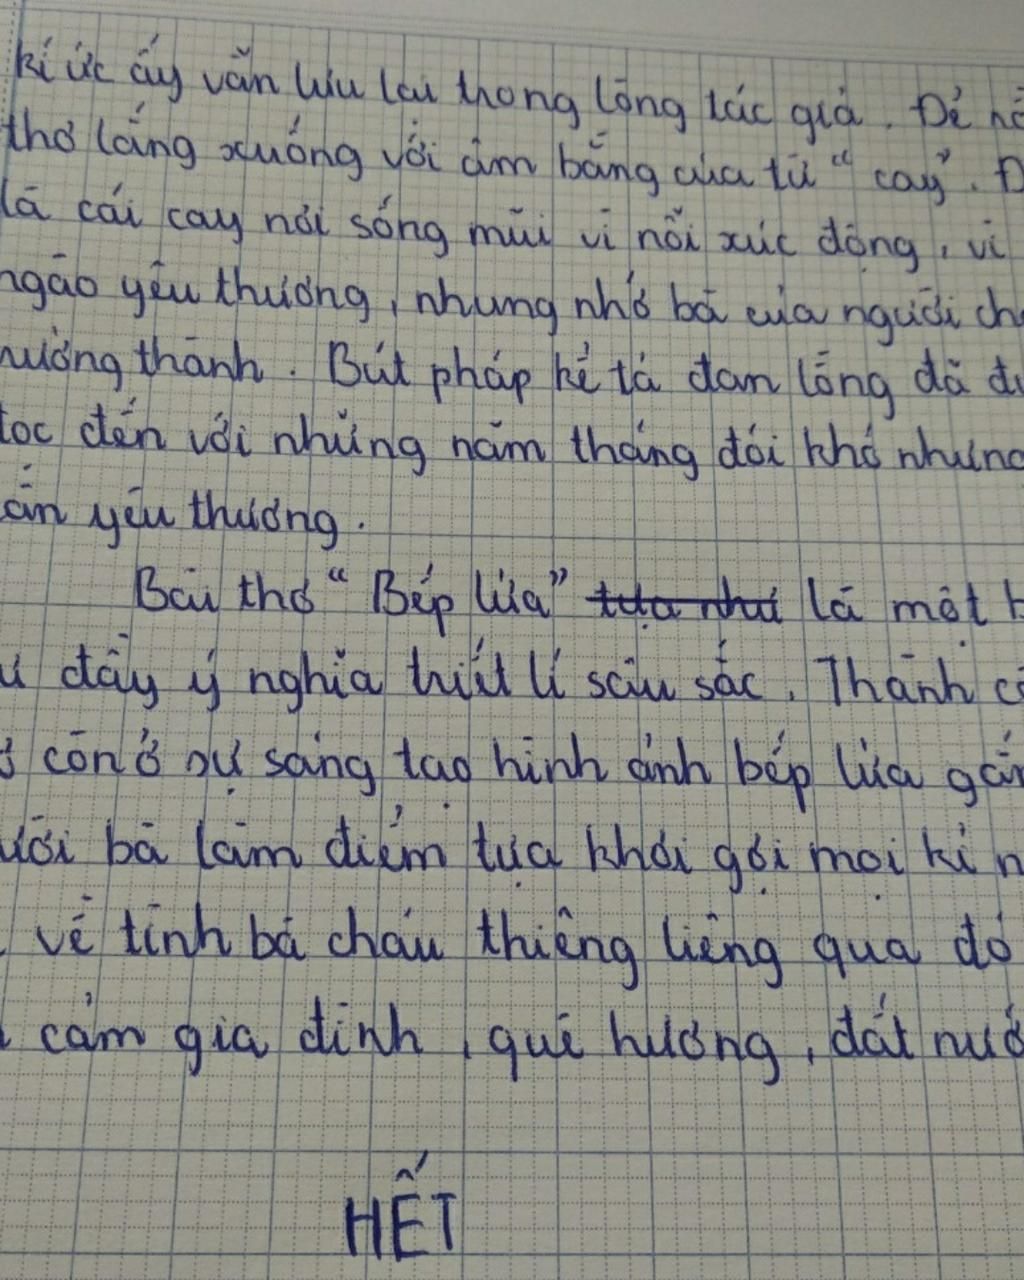 kí ức ấy vẫn lưu lại trong lòng tác giả. Để
thơ lắng xuống với âm bằng của từ "cay". Đ
là cái cay nơi sống mũi vì nỗi xúc động, vì
ngào yêu thương, nhưng nhớ bà của người ch
rưởng thành. Bút pháp kể tả đan lồng đã đư
tọc đến với những năm tháng đói khổ nhưng
ắn yêu thương.
Bài thơ "Bếp lửa" tựa như là một b
u đầy ý nghĩa triết lí sâu sắc. Thành cô
ơ còn ở sự sáng tạo hình ảnh bếp lửa gắn
ười bà làm điểm tựa khơi gợi mọi kỉ n
về tình bà cháu thiêng liêng qua đó
cảm gia đình, quê hương, đất nướ
HẾT